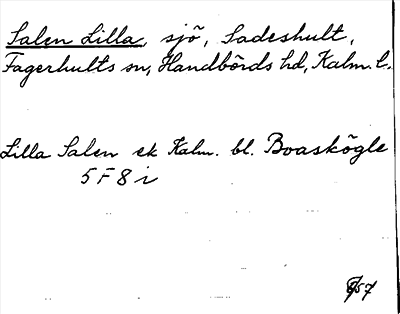 Salen Lilla, sjö, Sadeshult,
Fagerhults sn, Handbörds hd, Kalm. l.
Lilla Salen ek Kalm. bl. Boaskögle
5 F 8 i